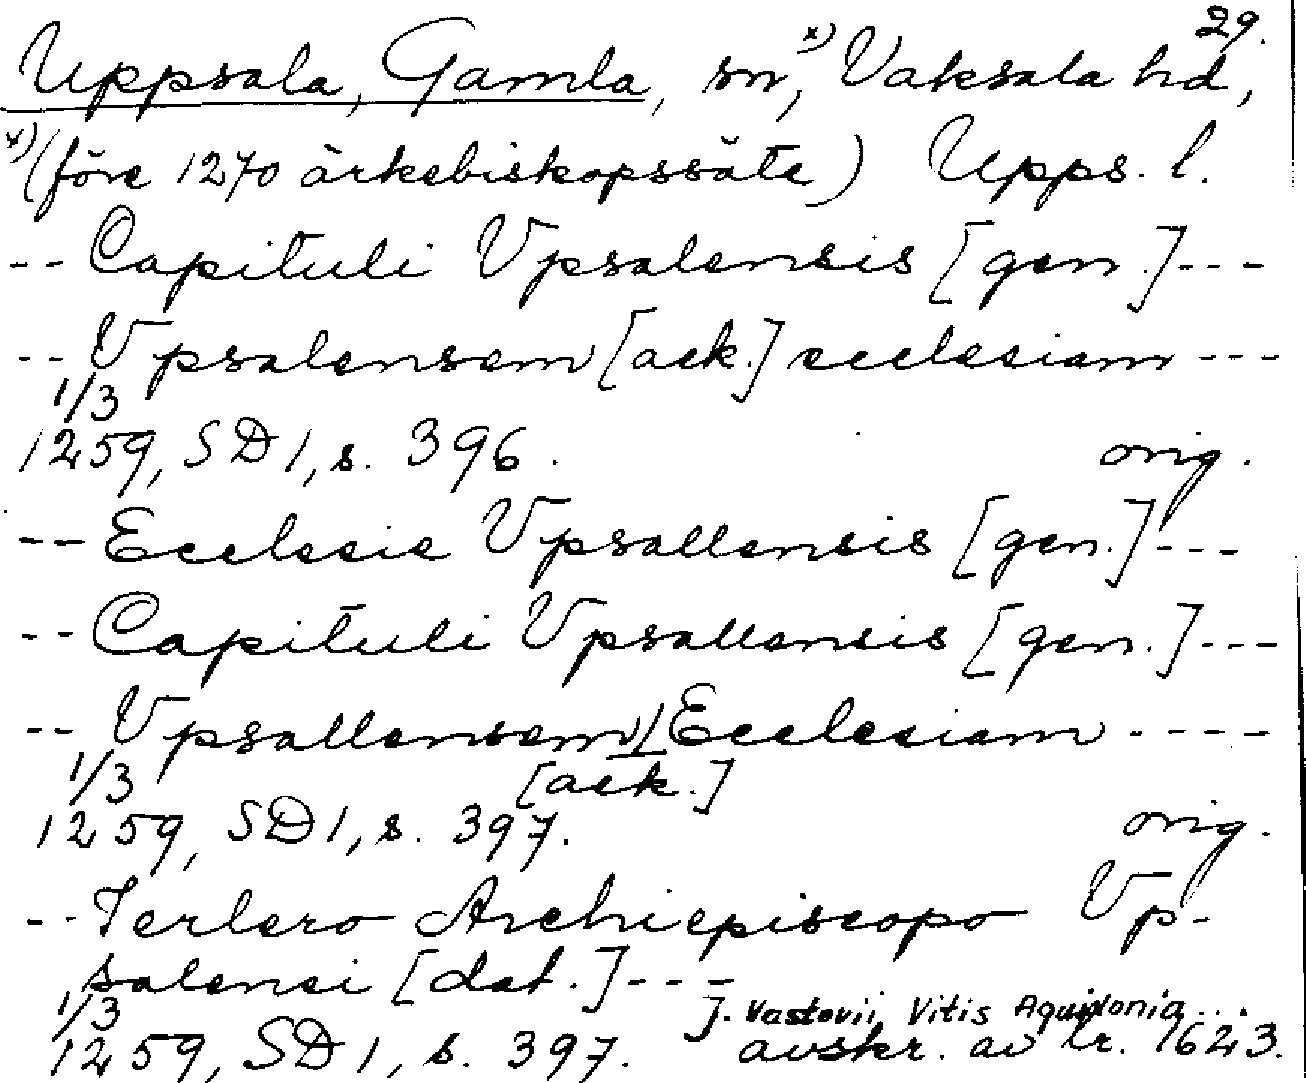 29.
Uppsala, Gamla, sn,x) Vaksala hd,
x)(före 1270 ärkebiskopssäte) Upps. l.
-- Capituli Vpsalensis [gen.] ---
-- Vpsalensem [ack.] ecclesiam ---
1/3
1259, SD 1, s. 396. orig.
-- Ecclesie Vpsallensis [gen.] ---
-- Capituli Vpsallensis [gen.] ---
-- Vpsallensem Ecclesiam ----
1/3 [ack.]
1259, SD 1, s. 397. orig.
-- Terlero Archiepiscopo Vp-
salensi [dat.] ---
1/3 J. Vastovii Vitis Aquilonia ...
1259, SD 1, s. 397. avskr. av tr. 1623.